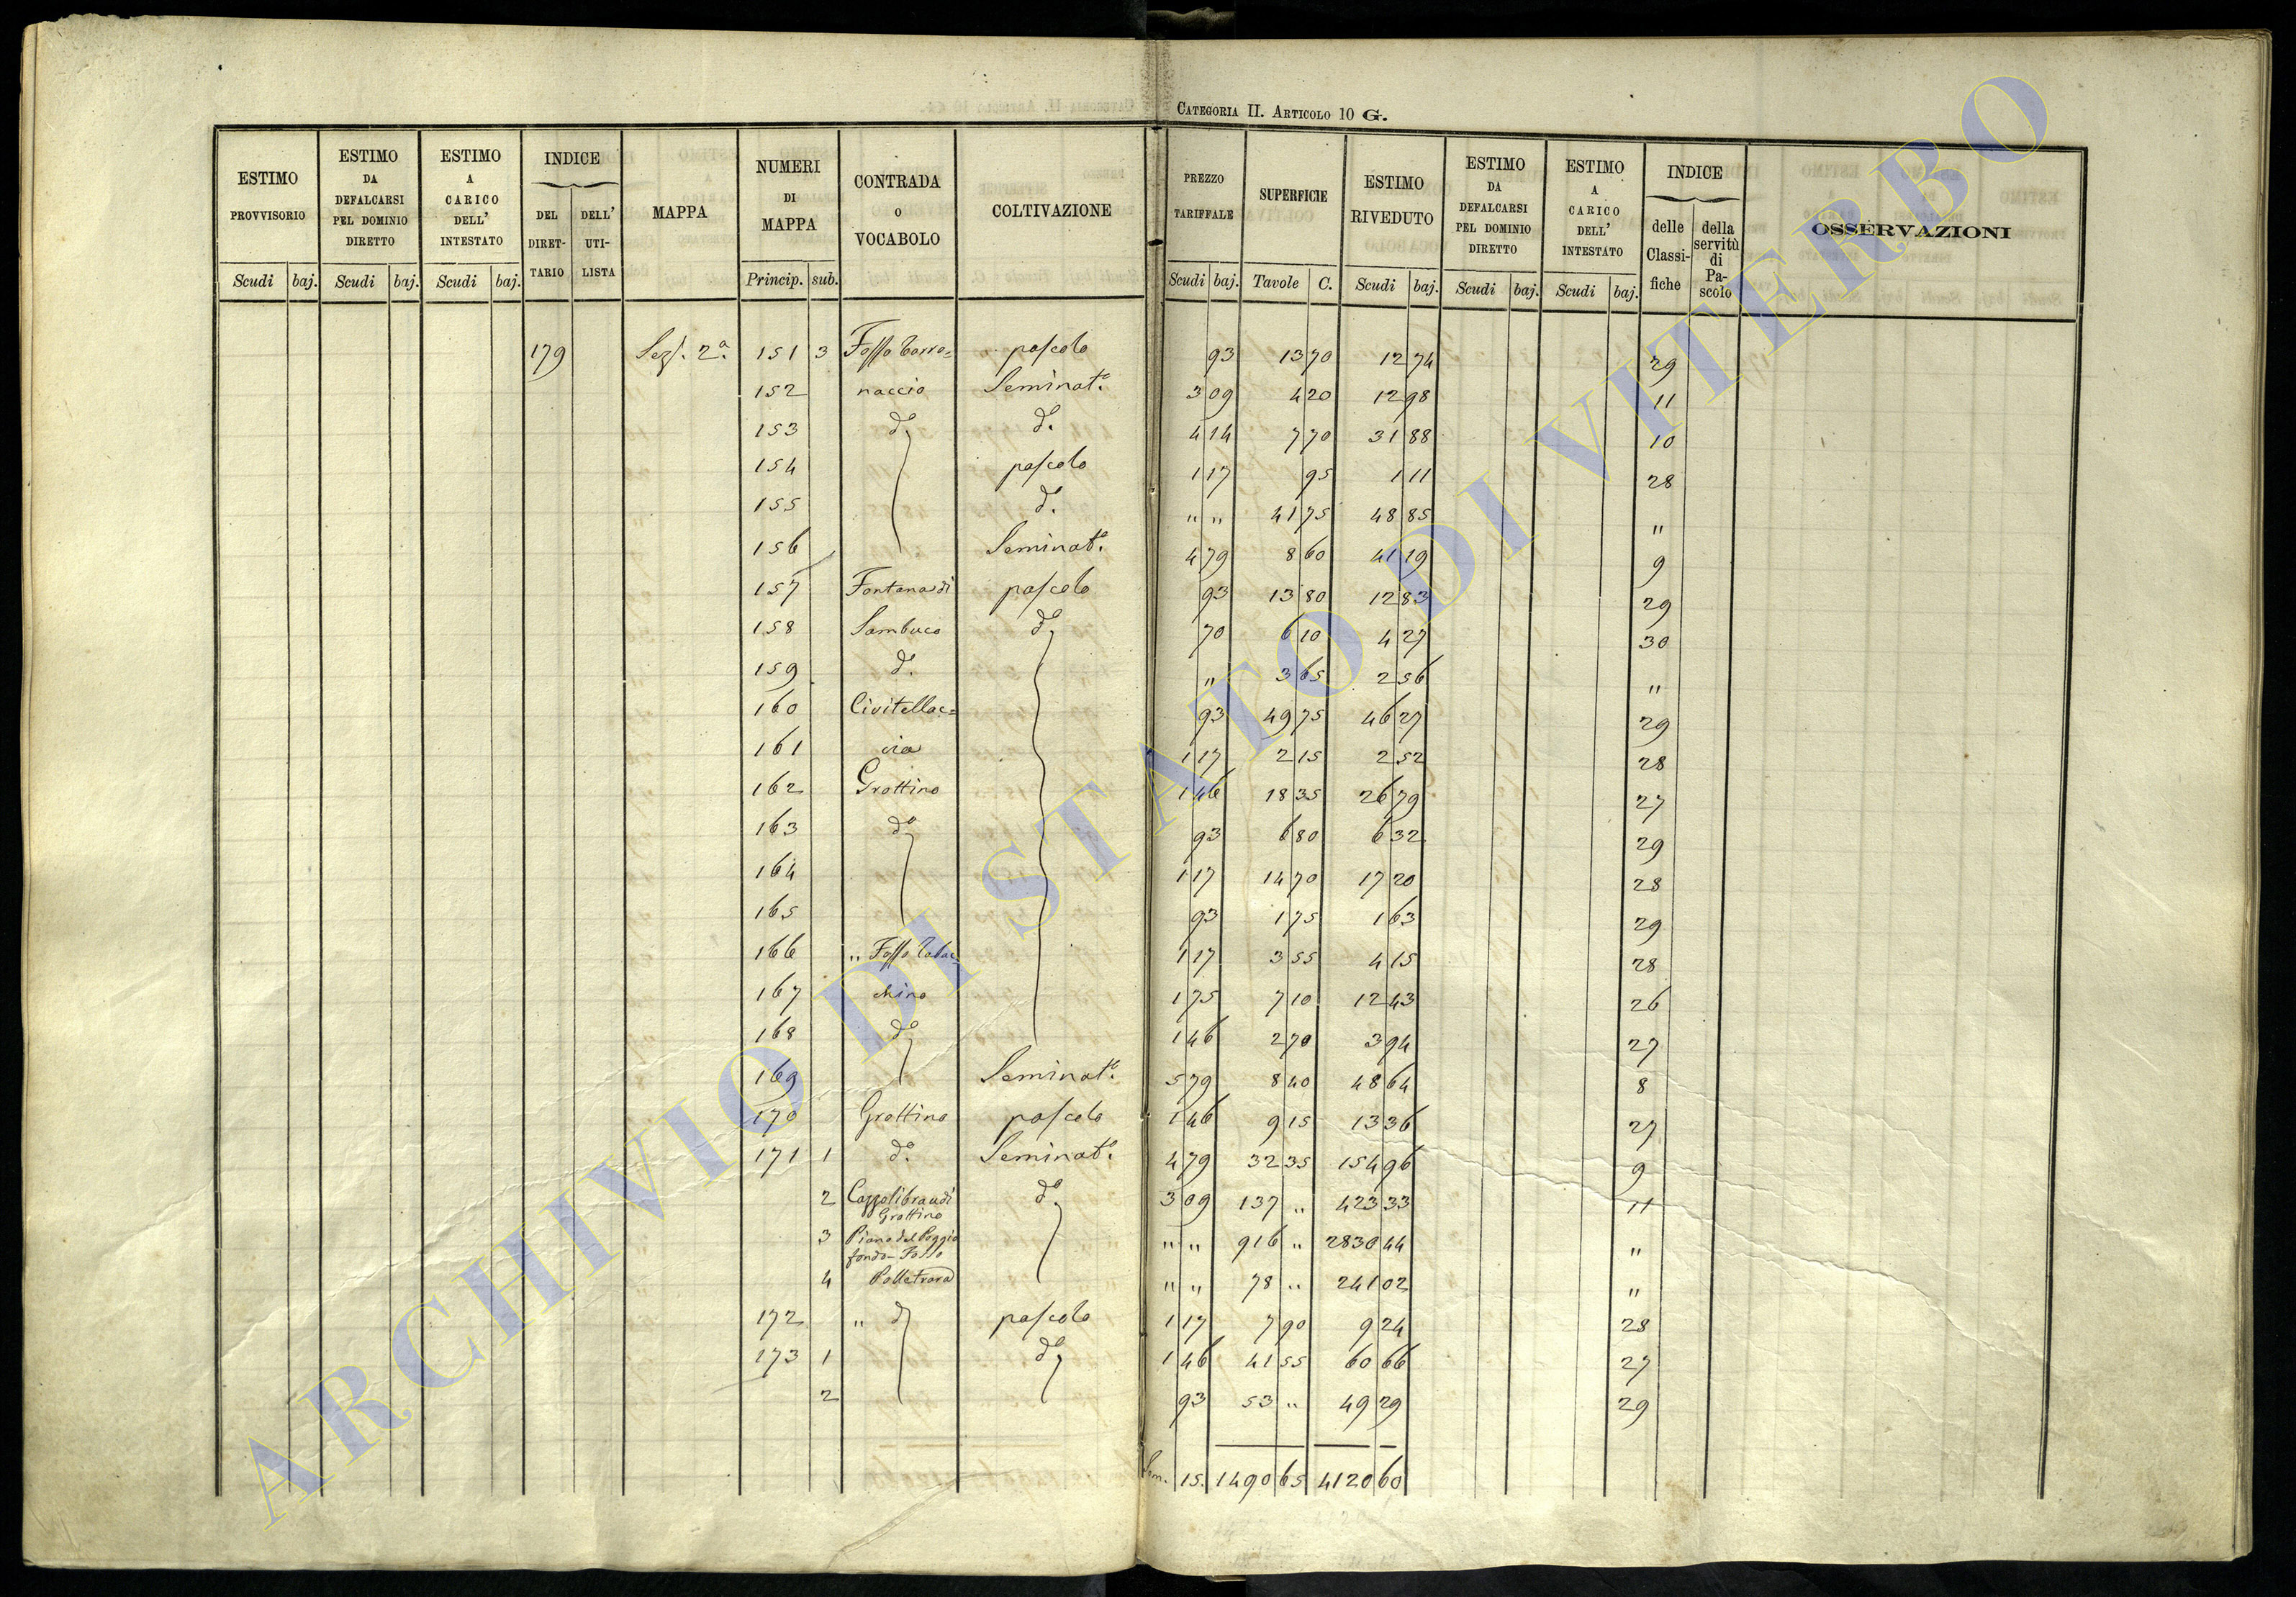 CATEGORIA II. ARTICOLO 10 G.
ESTIMO PROVVISORIO Scudi baj.
ESTIMO DA DEFALCARSI PEL DOMINIO DIRETTO Scudi baj.
ESTIMO A CARICO DELL' INTESTATO Scudi baj.
INDICE DEL DIRET-TARIO DELL' UTI-LISTA
MAPPA
NUMERI DI MAPPA Princip. sub.
CONTRADA O VOCABOLO
COLTIVAZIONE
PREZZO TARIFFALE Scudi baj.
SUPERFICIE Tavole C.
ESTIMO RIVEDUTO Scudi baj.
ESTIMO DA DEFALCARSI PEL DOMINIO DIRETTO Scudi baj.
ESTIMO A CARICO DELL' INTESTATO Scudi baj.
INDICE delle Classi-fiche della servitù di Pa-scolo
OSSERVAZIONI
179 Sez. 2ª 151 3 Fosso Torro= pascolo 93 13 70 12 74 29
152 naccio Seminatº. 3 09 4 20 12 98 11
153 dº dº. 4 14 7 70 31 88 10
154 pascolo 1 17 95 1 11 28
155 dº. " " 41 75 48 85 "
156 Seminatº. 4 79 8 60 41 19 9
157 Fontanaidi pascolo 93 13 80 12 83 29
158 Sambuco dº 70 6 10 4 27 30
159 dº. " 3 65 2 56 "
160 Civitellac= 93 49 75 46 27 29
161 via 1 17 2 15 2 52 28
162 Grottino 1 46 18 35 26 79 27
163 dº 93 6 80 6 32 29
164 1 17 14 70 17 20 28
165 93 1 75 1 63 29
166 " Fosso Tabac= 1 17 3 55 4 15 28
167 chino 1 75 7 10 12 43 26
168 dº 1 46 2 70 3 94 27
169 Seminatº. 5 79 8 40 48 64 8
170 Grottino pascolo 1 46 9 15 13 36 27
171 1 dº. Seminatº. 4 79 32 35 154 96 9
2 Cazzolibraudi Grottino dº 3 09 137 " 423 33 11
3 Piano del Poggio fondo-Fosso " " 916 " 2830 44 "
4 Polletrara " " 78 " 241 02 "
172 " dº pascolo 1 17 7 90 9 24 28
173 1 dº 1 46 41 55 60 66 27
2 93 53 " 49 29 29
Sem. 15. 1490 65 4120 60
ARCHIVIO DI STATO DI VITERBO